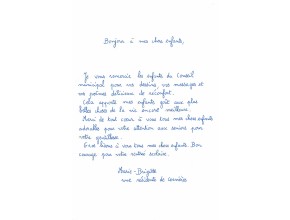 Bonjour à mes chers enfants,
Je vous remercie les enfants du Conseil
municipal pour vos dessins, vos messages et
vos poèmes délicieux de réconfort.
Cela apporte mes enfants goût aux plus
belles choses de la vie encore meilleure.
Merci de tout cœur à vous tous mes chers enfants
adorables pour votre attention aux seniors pour
votre gentillesse.
Gros bisous à vous tous mes chers enfants. Bon
courage pour votre rentrée scolaire.
Marie-Brigitte
une résidente de